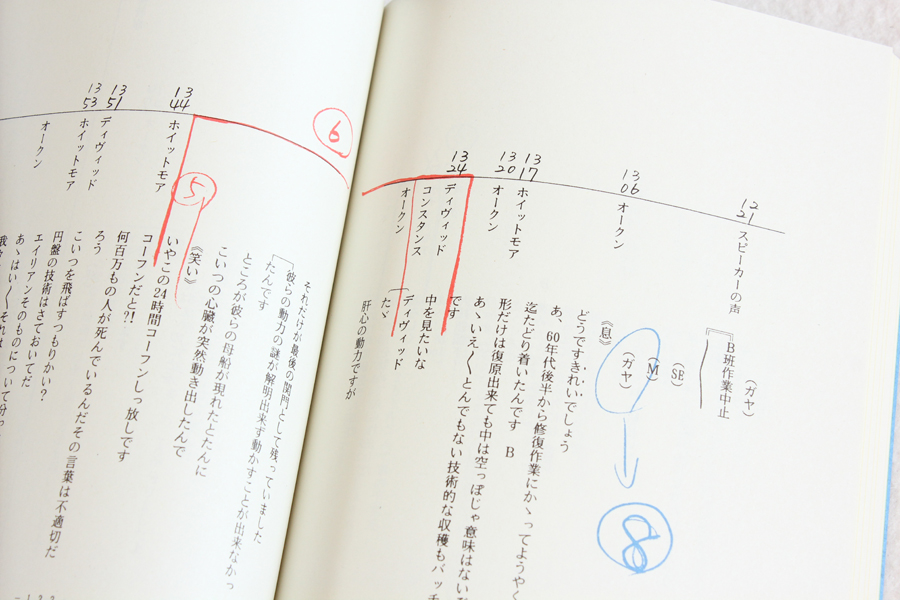 12
21
スピーカーの声
(ガヤ)
『B班作業中止
(SE)
(M)
(ガヤ)
8
13
06
オークン
《息》
どうですきれいでしょう
あ、60年代後半から修復作業にかゝってようやく
迄たどり着いたんです B
13
17
ホイットモア
形だけは復原出来ても中は空っぽじゃ意味はないな
13
20
オークン
あゝいえ〳〵とんでもない技術的な収穫もバッチ
13
24
ディヴィッド
です
コンスタンス
中を見たいな
オークン
ディヴィッド
たゞ
肝心の動力ですが
6
それだけが最後の関門として残っていました
彼らの動力の謎が解明出来ず動かすことが出来なかっ
たんです
ところが彼らの母船が現れたとたんに
こいつの心臓が突然動き出したんで
《笑い》
5
13
44
ホイットモア
いやこの24時間コーフンしっ放しです
コーフンだと?!
何百万もの人が死んでいるんだその言葉は不適切だ
ろう
13
51
ディヴィッド
こいつを飛ばすつもりかい?
13
53
ホイットモア
円盤の技術はさておいてだ
エイリアンそのものについて分
オークン
あゝはい〳〵それは